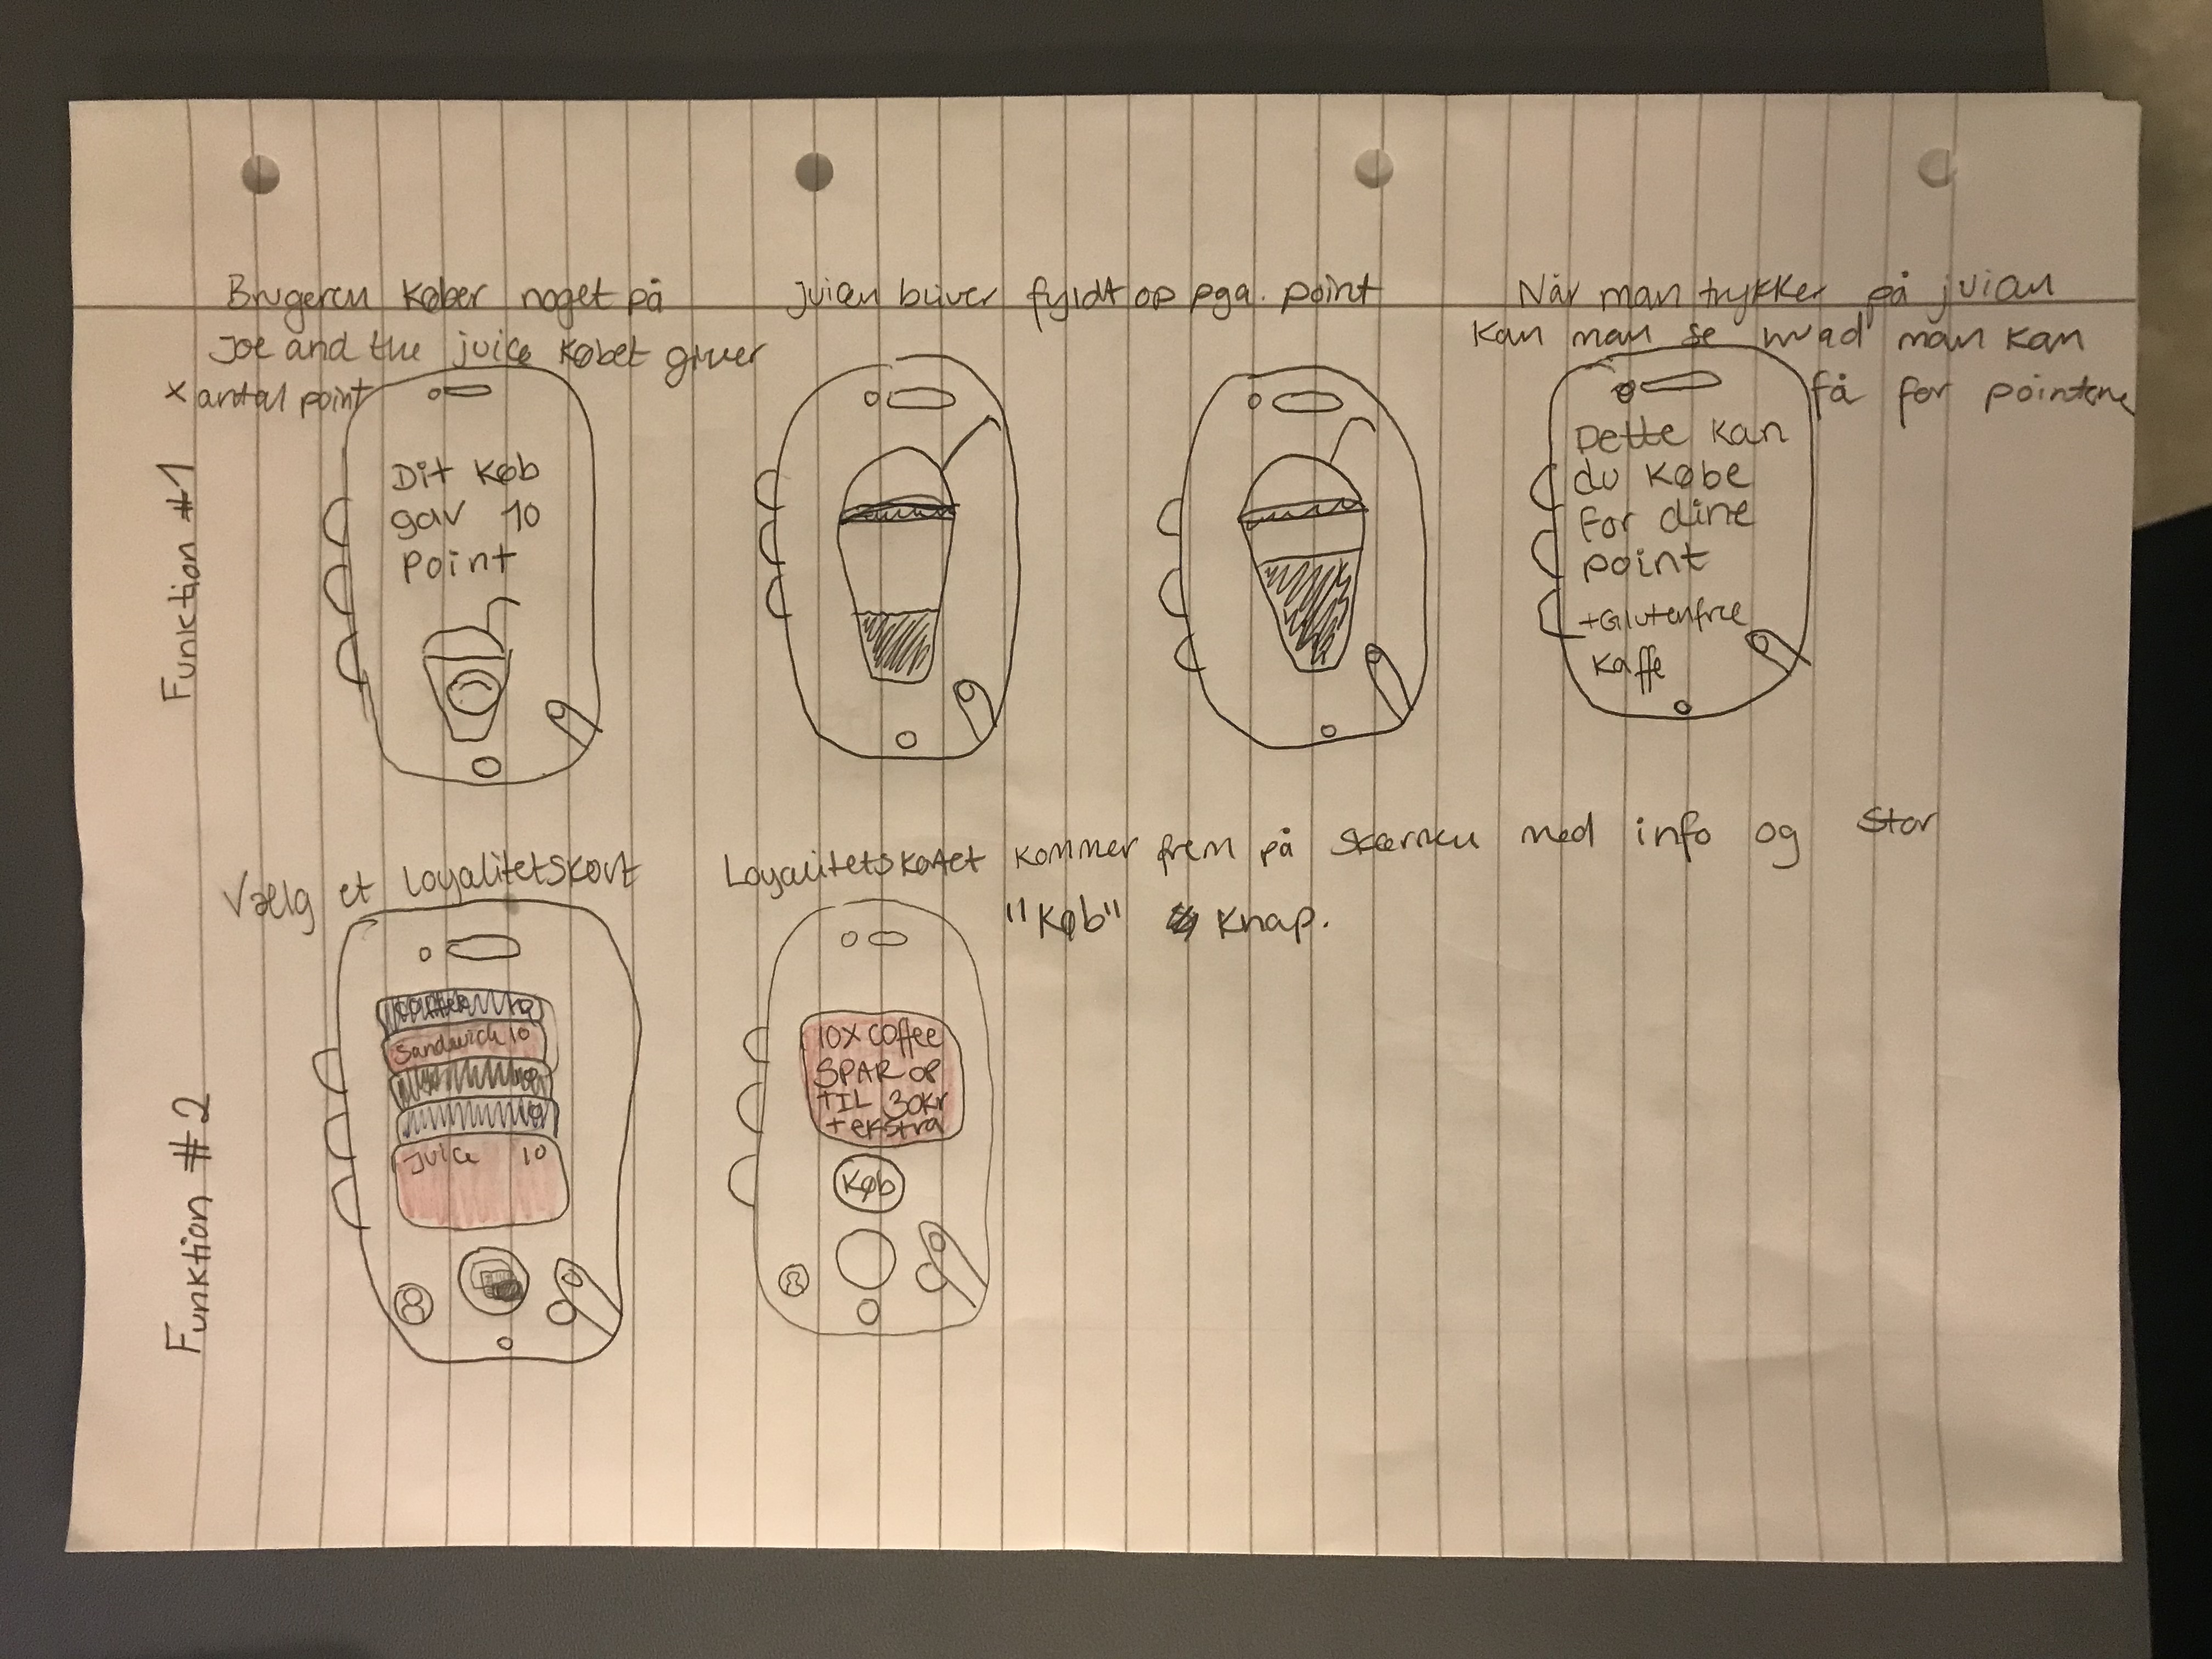 Funktion #1
Brugeren køber noget på
Joe and the juice købet giver
x antal point
Dit køb
gav 10
point
juicen bliver fyldt op pga. point
Når man trykker på juicen
kan man se hvad man kan
få for pointene
Dette kan
du købe
for dine
point
+Glutenfree
kaffe
Funktion #2
Vælg et loyalitetskort
Sandwich 10
Juice 10
Loyalitetskortet kommer frem på skærmen med info og stor
"Køb" knap.
10X coffee
SPAR OP
TIL 30kr
+ ekstra
Køb